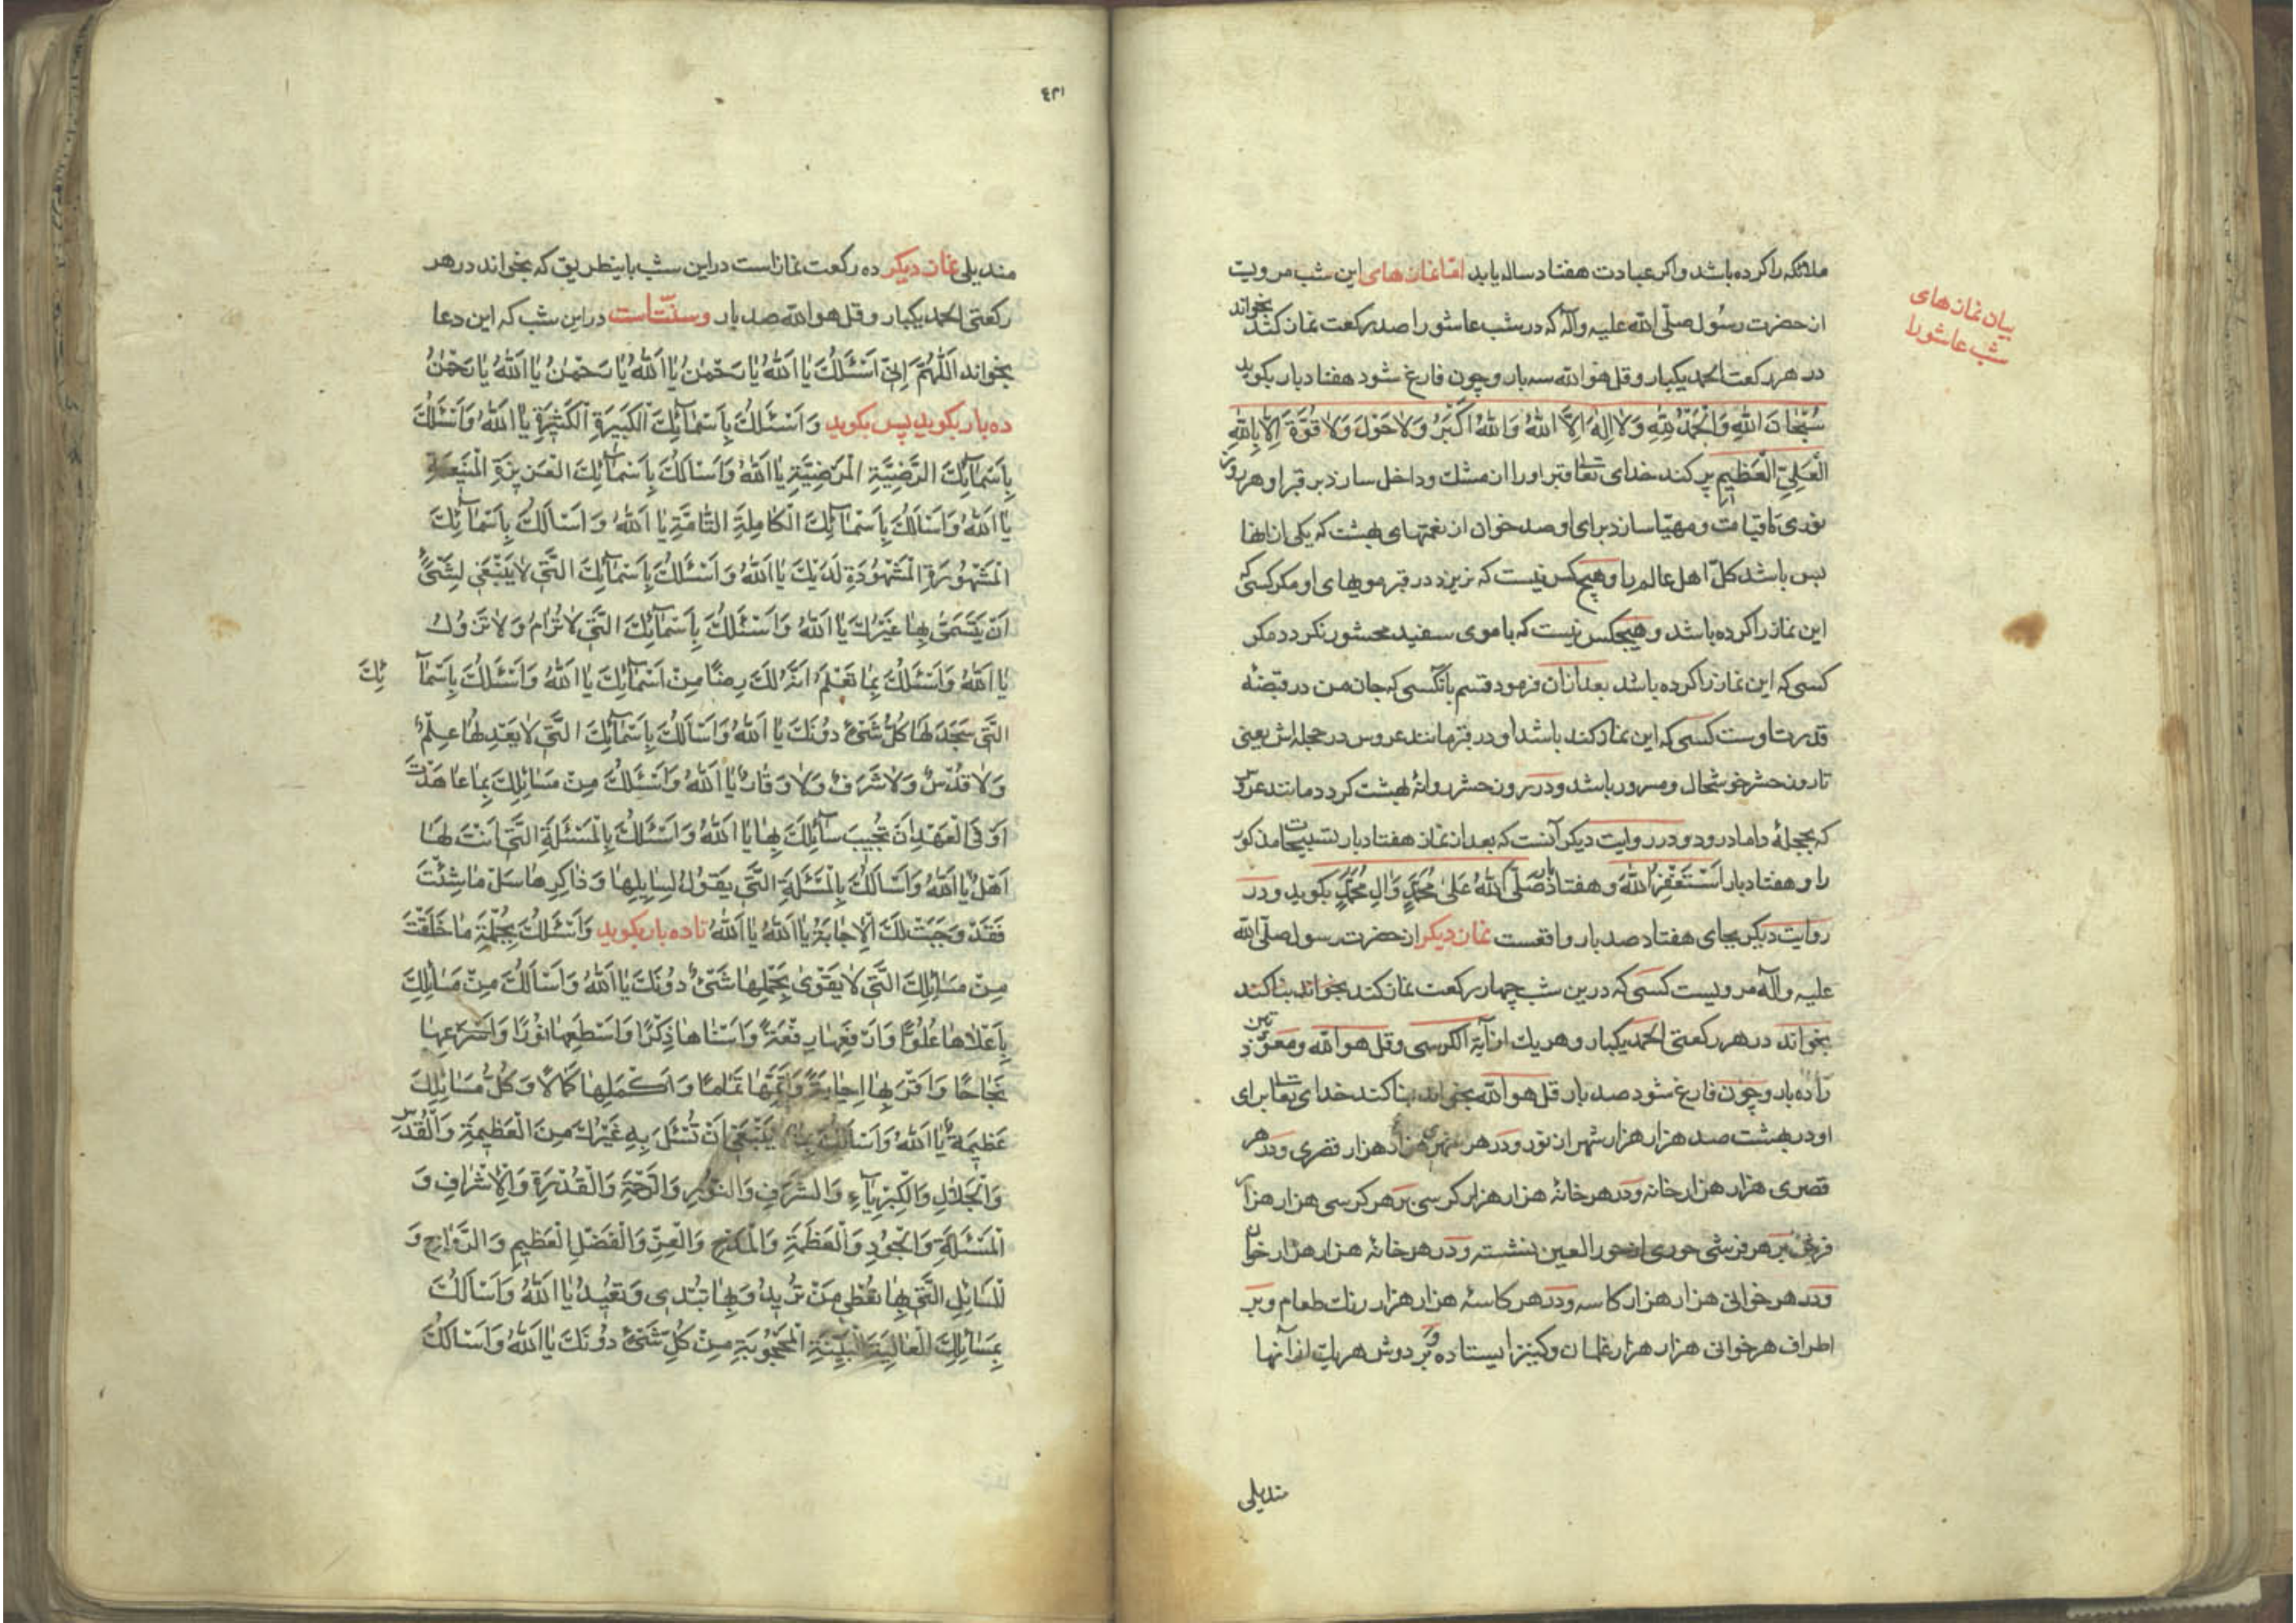 ملائكه را كرده باشد و اكر عبادت هفتاد ساله يابد اما نمازهاى اين شب مرويست
از حضرت رسول صلّى الله عليه وآله كه در شب عاشورا صد ركعت نماز كند بخواند
در هر ركعت الحمد يكبار و قل هو الله سه بار و چون فارغ شود هفتاد بار بكويد
سُبْحَانَ اللهِ وَالْحَمْدُ لِلّهِ وَلا اِلهَ اِلاَّ اللهُ وَاللهُ اَكْبَرُ وَلا حَوْلَ وَلا قُوَّةَ اِلاّ بِاللهِ
الْعَلِيِّ الْعَظِيمِ پر كند خداى تعا قبر او را از مشك و داخل سازد بر قبر او هر روز
نورى تا قيامت و مهيّا سازد براى او صد خوان از نعمتهاى بهشت كه يكى از انها
بس باشد كلّ اهل عالم را و هيچكس نيست كه نريزد در قبر مويهاى او مكر كسى كه
اين نماز را كرده باشد و هيچكس نيست كه با موى سفيد محشور نكردد مكر
كسى كه اين نماز را كرده باشد بعد ازان فرمود قسم بآنكسى كه جان من در قبضهٔ
قدرت اوست كسى كه اين نماز كند باشد او در قبر مانند عروس در حجله اش يعنى
تا روز حشر خوشحال و مسرور باشد و در روز حشر روانهٔ بهشت كردد مانند عروس
كه بحجلهٔ داماد رود و در روايت ديكر آنست كه بعد از نماز هفتاد بار تسبيحات مذكور
را و هفتاد بار اَسْتَغْفِرُ اللهَ و هفتاد بار صَلَّى اللهُ عَلى مُحَمَّدٍ وَالِ مُحَمَّدٍ بكويد و در
روايت ديكر بجاى هفتاد صد بار واقعست نماز ديكر از حضرت رسول صلّى الله
عليه وآله مرويست كسى كه درين شب چهار ركعت نماز كند بخواند بنا كند
بخواند در هر ركعتى الحمد يكبار و هر يك از آية الكرسى و قل هو الله و معوّذتين
را ده بار و چون فارغ شود صد بار قل هو الله بخواند بنا كند خداى تعا براى
او در بهشت صد هزار هزار شهر از نور و در هر شهرى هزار هزار قصرى و در هر
قصرى هزار هزار خانه و در هر خانهٔ هزار هزار كرسى بر هر كرسى هزار هزار
فرش بر هر فرشى حورى از حور العين نشسته و در هر خانهٔ هزار هزار خوان
و در هر خوانى هزار هزار كاسه و در هر كاسهٔ هزار هزار رنك طعام و بر
اطراف هر خوانى هزار هزار غلمان و كنيز ايستاده و بر دوش هر يك از آنها
منديلى
بيان نمازهاى
شب عاشورا
۴۳۱
منديلى نماز ديكر ده ركعت نماز است در اين شب باينطريق كه بخواند در هر
ركعتى الحمد يكبار و قل هو الله صد بار و سنّتست در اين شب كه اين دعا
بخواند اَللّهُمَّ اِنّى اَسْئَلُكَ يا اَللهُ يا رَحْمنُ يا اَللهُ يا رَحْمنُ يا اَللهُ يا رَحْمنُ
ده بار بكويد پس بكويد وَاَسْئَلُكَ بِاَسْمائِكَ الْكَبيرَةِ الْكَثيرَةِ يا اَللهُ وَاَسْئَلُكَ
بِاَسْمائِكَ الرَّضِيَّةِ الْمَرْضِيَّةِ يا اَللهُ وَاَسْاَلُكَ بِاَسْمائِكَ الْعَزيزَةِ الْمَنيعَةِ
يا اَللهُ وَاَسْاَلُكَ بِاَسْمائِكَ الْكامِلَةِ التّامَّةِ يا اَللهُ وَاَسْاَلُكَ بِاَسْمائِكَ
الْمَشْهُورَةِ الْمَشْهُودَةِ لَدَيْكَ يا اَللهُ وَاَسْئَلُكَ بِاَسْمائِكَ الَّتى لا يَنْبَغى لِشَىْءٍ
اَنْ يَتَسَمّى بِها غَيْرُكَ يا اَللهُ وَاَسْئَلُكَ بِاَسْمائِكَ الَّتى لا تُرامُ وَلا تَزُولُ
يا اَللهُ وَاَسْئَلُكَ بِما تَعْلَمُ اَنَّهُ لَكَ رِضًا مِنْ اَسْمائِكَ يا اَللهُ وَاَسْئَلُكَ بِاَسْمائِكَ
الَّتى سَجَدَ لَها كُلُّ شَىْءٍ دُونَكَ يا اَللهُ وَاَسْاَلُكَ بِاَسْمائِكَ الَّتى لا يَعْدِلُها عِلْمٌ
وَلا قُدْسٌ وَلا شَرَفٌ وَلا وَقارٌ يا اَللهُ وَاَسْئَلُكَ مِنْ مَسائِلِكَ بِما عاهَدْتَ
اَوْفَى الْعَهْدِ اَنْ تُجيبَ سائِلَكَ بِها يا اَللهُ وَاَسْئَلُكَ بِالْمَسْئَلَةِ الَّتى اَنْتَ لَها
اَهْلٌ يا اَللهُ وَاَسْاَلُكَ بِالْمَسْئَلَةِ الَّتى يَقُولُ لِسايِلِها وَذاكِرِها سَلْ ما شِئْتَ
فَقَدْ وَجَبَتْ لَكَ الْاِجابَةُ يا اَللهُ يا اَللهُ تا ده بار بكويد وَاَسْئَلُكَ بِجُمْلَةِ ما خَلَقْتَ
مِنْ مَسائِلِكَ الَّتى لا يَقْوى بِحَمْلِها شَىْءٌ دُونَكَ يا اَللهُ وَاَسْاَلُكَ مِنْ مَسائِلِكَ
بِاَعْلاها عُلُوًّا وَاَرْفَعِها رِفْعَةً وَاَسْناها ذِكْرًا وَاَسْطَعِها نُورًا وَاَسْرَعِها
نَجاحًا وَاَقْرَبِها اِجابَةً وَاَتَمِّها تَمامًا وَاَكْمَلِها كَمالًا وَكُلُّ مَسائِلِكَ
عَظيمَةٌ يا اَللهُ وَاَسْاَلُكَ بِما يَنْبَغى اَنْ تُسْئَلَ بِهِ غَيْرُكَ مِنَ الْعَظيمَةِ وَالْقُدْسِ
وَالْجَلالِ وَالْكِبْرِياءِ وَالشَّرَفِ وَالنُّورِ وَالرَّحْمَةِ وَالْقُدْرَةِ وَالْاِشْرافِ وَ
الْمَسْئَلَةِ وَالْجُودِ وَالْعَظَمَةِ وَالْمَدْحِ وَالْعِزِّ وَالْفَضْلِ الْعَظيمِ وَالرَّواجِ وَ
الْمَسائِلِ الَّتى بِها تُعْطى مَنْ تُريدُ وَبِها تُبْدِى وَتُعيدُ يا اَللهُ وَاَسْاَلُكَ
بِمَسائِلِكَ الْعالِيَةِ الْبَيِّنَةِ الْمَحْجُوبَةِ مِنْ كُلِّ شَىْءٍ دُونَكَ يا اَللهُ وَاَسْاَلُكَ